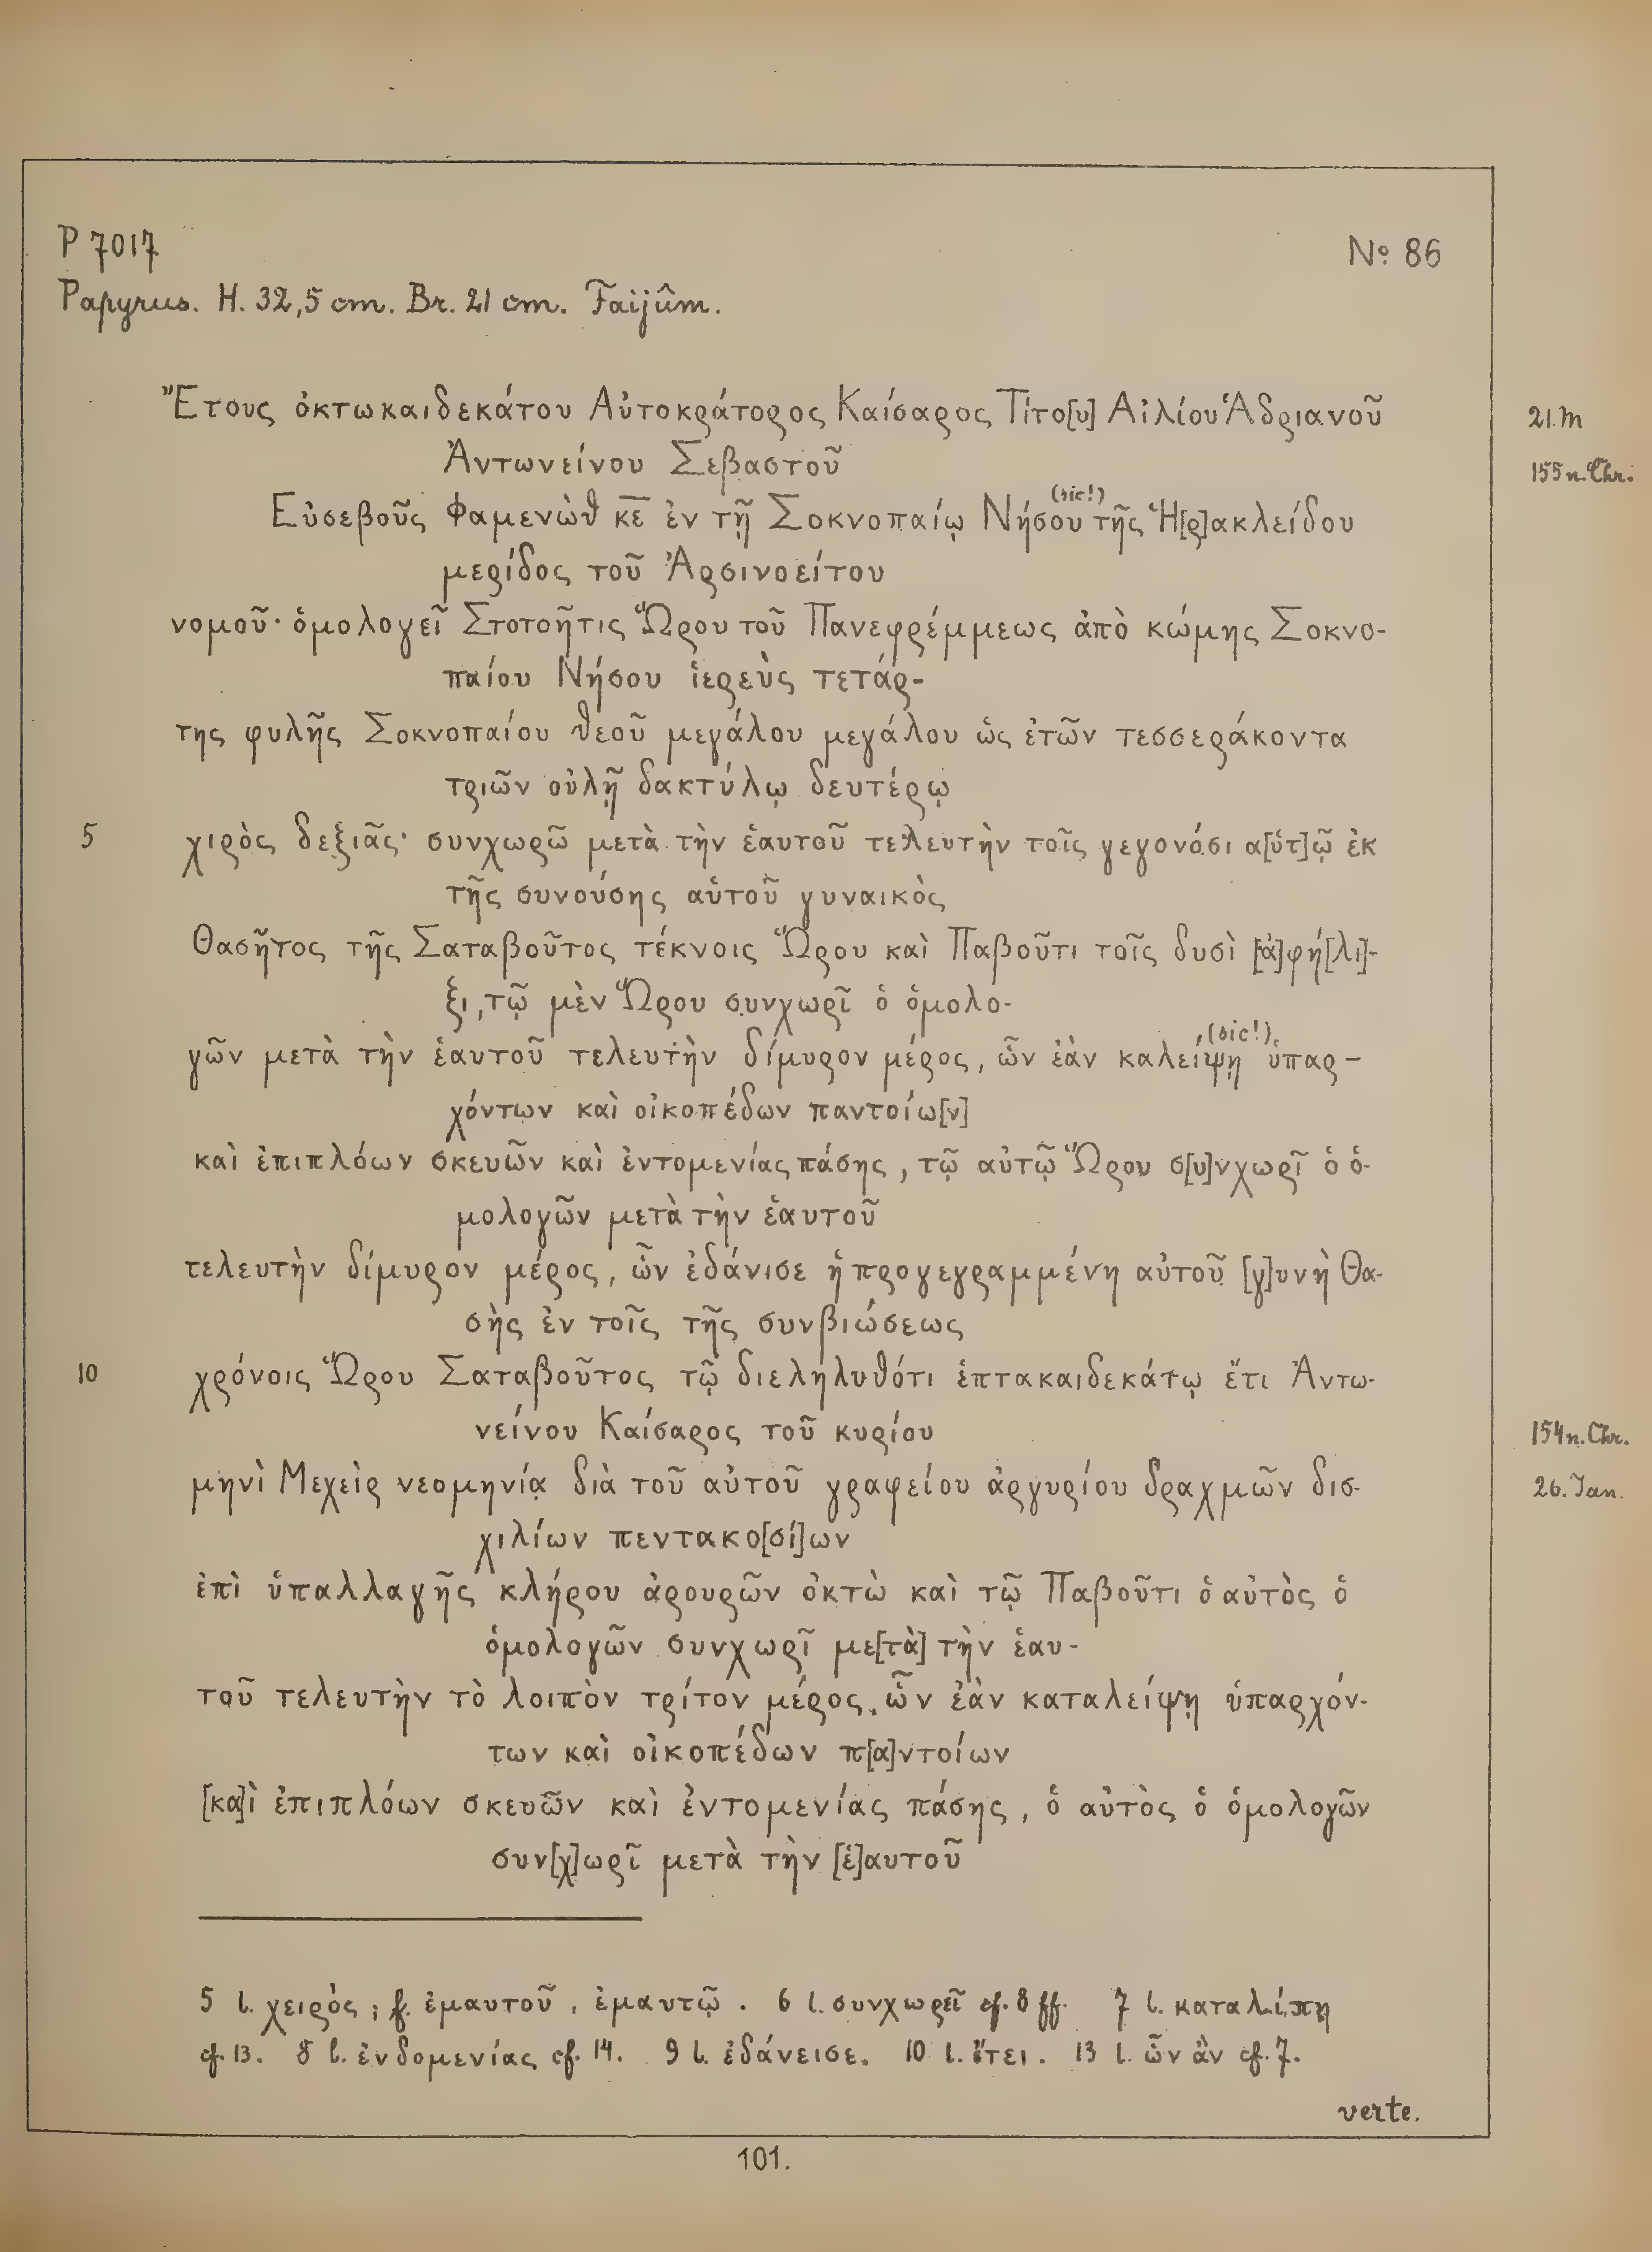 P 7017
No 86
Papyrus. H. 32,5 cm. Br. 21 cm. Faijûm.
Ἔτους ὀκτωκαιδεκάτου Αὐτοκράτορος Καίσαρος Τίτο[υ] Αἰλίου Ἁδριανοῦ
21. M
Ἀντωνείνου Σεβαστοῦ
155 n. Chr.
Εὐσεβοῦς Φαμενὼθ κε̅ ἐν τῇ Σοκνοπαίῳ Νήσου (sic!) τῆς Ἡ[ρ]ακλείδου
μερίδος τοῦ Ἀρσινοείτου
νομοῦ· ὁμολογεῖ Στοτοῆτις Ὥρου τοῦ Πανεφρέμμεως ἀπὸ κώμης Σοκνο-
παίου Νήσου ἱερεὺς τετάρ-
της φυλῆς Σοκνοπαίου θεοῦ μεγάλου μεγάλου ὡς ἐτῶν τεσσεράκοντα
τριῶν οὐλῇ δακτύλῳ δευτέρῳ
5 χιρὸς δεξιᾶς· συνχωρῶ μετὰ τὴν ἑαυτοῦ τελευτὴν τοῖς γεγονόσι α[ὐτ]ῷ ἐκ
τῆς συνούσης αὐτοῦ γυναικὸς
Θασῆτος τῆς Σαταβοῦτος τέκνοις Ὥρου καὶ Παβοῦτι τοῖς δυσὶ [ἀ]φή[λι]-
ξι, τῷ μὲν Ὥρου συνχωρῖ ὁ ὁμολο-
γῶν μετὰ τὴν ἑαυτοῦ τελευτὴν δίμυρον μέρος, ὧν ἐὰν καλείψῃ (sic!) ὑπαρ-
χόντων καὶ οἰκοπέδων παντοίω[ν]
καὶ ἐπιπλόων σκευῶν καὶ ἐντομενίας πάσης, τῷ αὐτῷ Ὥρου σ[υ]νχωρῖ ὁ ὁ-
μολογῶν μετὰ τὴν ἑαυτοῦ
τελευτὴν δίμυρον μέρος, ὧν ἐδάνισε ἡ προγεγραμμένη αὐτοῦ [γ]υνὴ Θα-
σὴς ἐν τοῖς τῆς συνβιώσεως
10 χρόνοις Ὥρου Σαταβοῦτος τῷ διεληλυθότι ἑπτακαιδεκάτῳ ἔτι Ἀντω-
νείνου Καίσαρος τοῦ κυρίου
154 n. Chr.
μηνὶ Μεχεὶρ νεομηνίᾳ διὰ τοῦ αὐτοῦ γραφείου ἀργυρίου δραχμῶν δισ-
26. Jan.
χιλίων πεντακο[σί]ων
ἐπὶ ὑπαλλαγῆς κλήρου ἀρουρῶν ὀκτὼ καὶ τῷ Παβοῦτι ὁ αὐτὸς ὁ
ὁμολογῶν συνχωρῖ με[τὰ] τὴν ἑαυ-
τοῦ τελευτὴν τὸ λοιπὸν τρίτον μέρος, ὧν ἐὰν καταλείψῃ ὑπαρχόν-
των καὶ οἰκοπέδων π[α]ντοίων
[κα]ὶ ἐπιπλόων σκευῶν καὶ ἐντομενίας πάσης, ὁ αὐτὸς ὁ ὁμολογῶν
συν[χ]ωρῖ μετὰ τὴν [ἑ]αυτοῦ
5 l. χειρός; f. ἐμαυτοῦ, ἐμαυτῷ. 6 l. συνχωρεῖ cf. 8 ff. 7 l. καταλίπῃ
cf. 13. 8 l. ἐνδομενίας cf. 14. 9 l. ἐδάνεισε. 10 l. ἔτει. 13 l. ὧν ἂν cf. 7.
verte.
101.